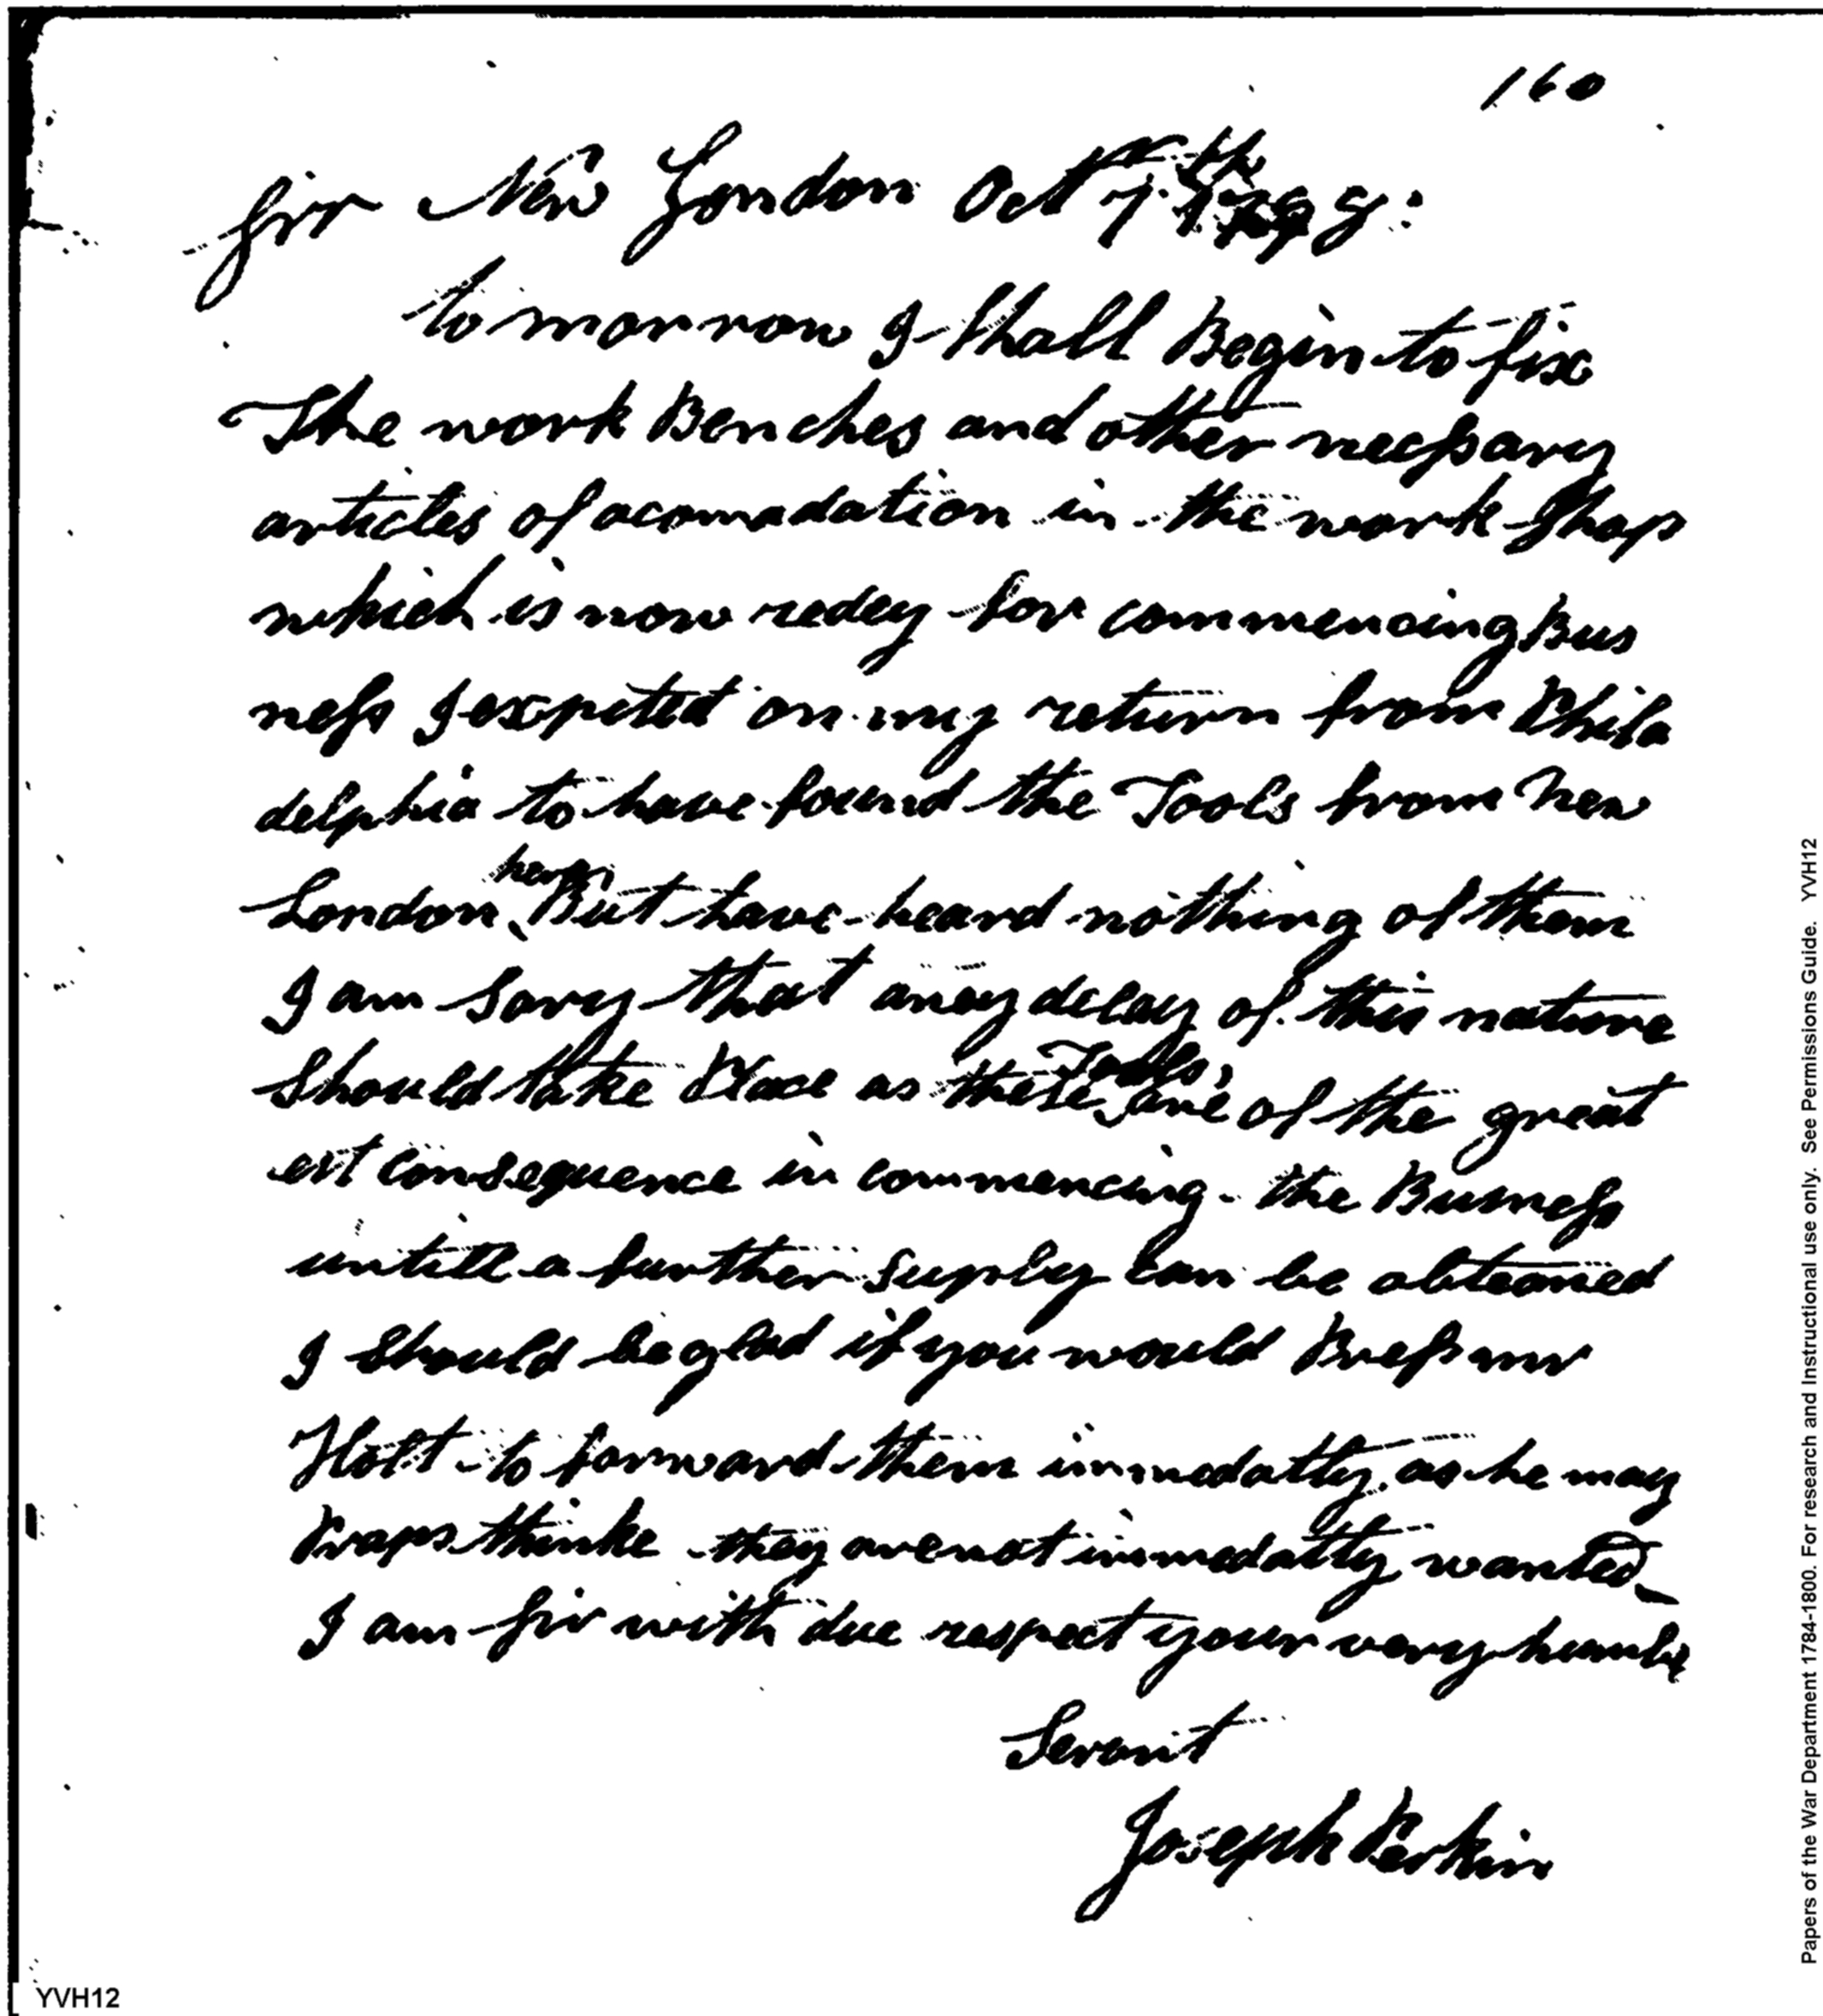 160
Sir New London Oct 7th 1798:
to morrow I shall Begin to fix
The work Benches and other necessary
articles of acomadation in the work Shop
which is now redey for commencing Bus
ness I expeted on my return from Phila
delphia to have found the Tools from New
London here But have heard nothing of them
I am Sory that aney delay of this nature
Should take Place as these Tools, are of the great
est consequence in commencing the Busness
untill a further Suply Can be obteaned
I Should be glad if you would Press mr
Hott to forward them immedatly as he may
Praps thinke they are not immedatly wanted
I am Sir with due respect your very humble
Servant
Joseph Perkin
YVH12
Papers of the War Department 1784-1800. For research and Instructional use only. See Permissions Guide. YVH12